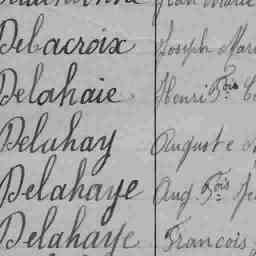 Delacroix Joseph Mari
Delahaie Henri Fois
Delahay August
Delahaye Aug. Fois
Delahaye Francois